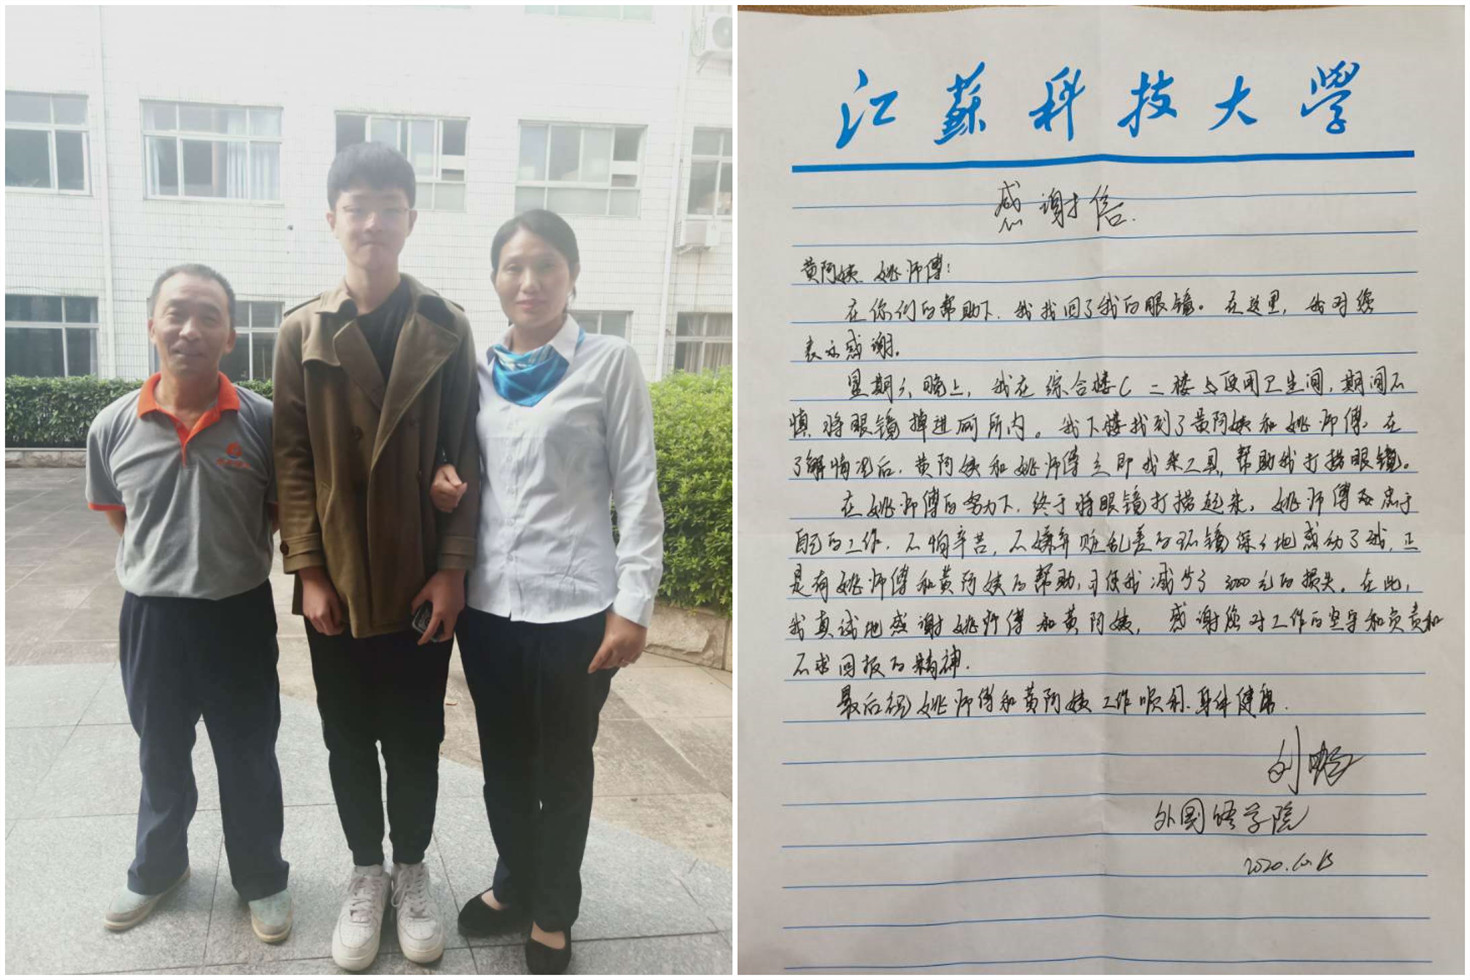 江蘇科技大學
感谢信.
黄阿姨 姚师傅:
在你们的帮助下,我找回了我的眼镜。在这里,我对您
表示感谢.
星期六晚上,我在综合楼C二楼 使用卫生间,期间不
慎将眼镜掉进厕所内。我下楼找到了黄阿姨和姚师傅,在
了解情况后,黄阿姨和姚师傅立即找来工具,帮助我打捞眼镜。
在姚师傅的努力下,终于将眼镜打捞起来,姚师傅 忠于
自己的工作,不怕辛苦,不嫌弃脏乱差的环镜深深地感动了我,正
是有姚师傅和黄阿姨的帮助,才使我减少了 元的损失。在此,
我真诚地感谢姚师傅和黄阿姨,感谢您对工作的坚守和负责和
不求回报的精神.
最后祝姚师傅和黄阿姨工作顺利.身体健康.
刘
外国语学院
2020.10.